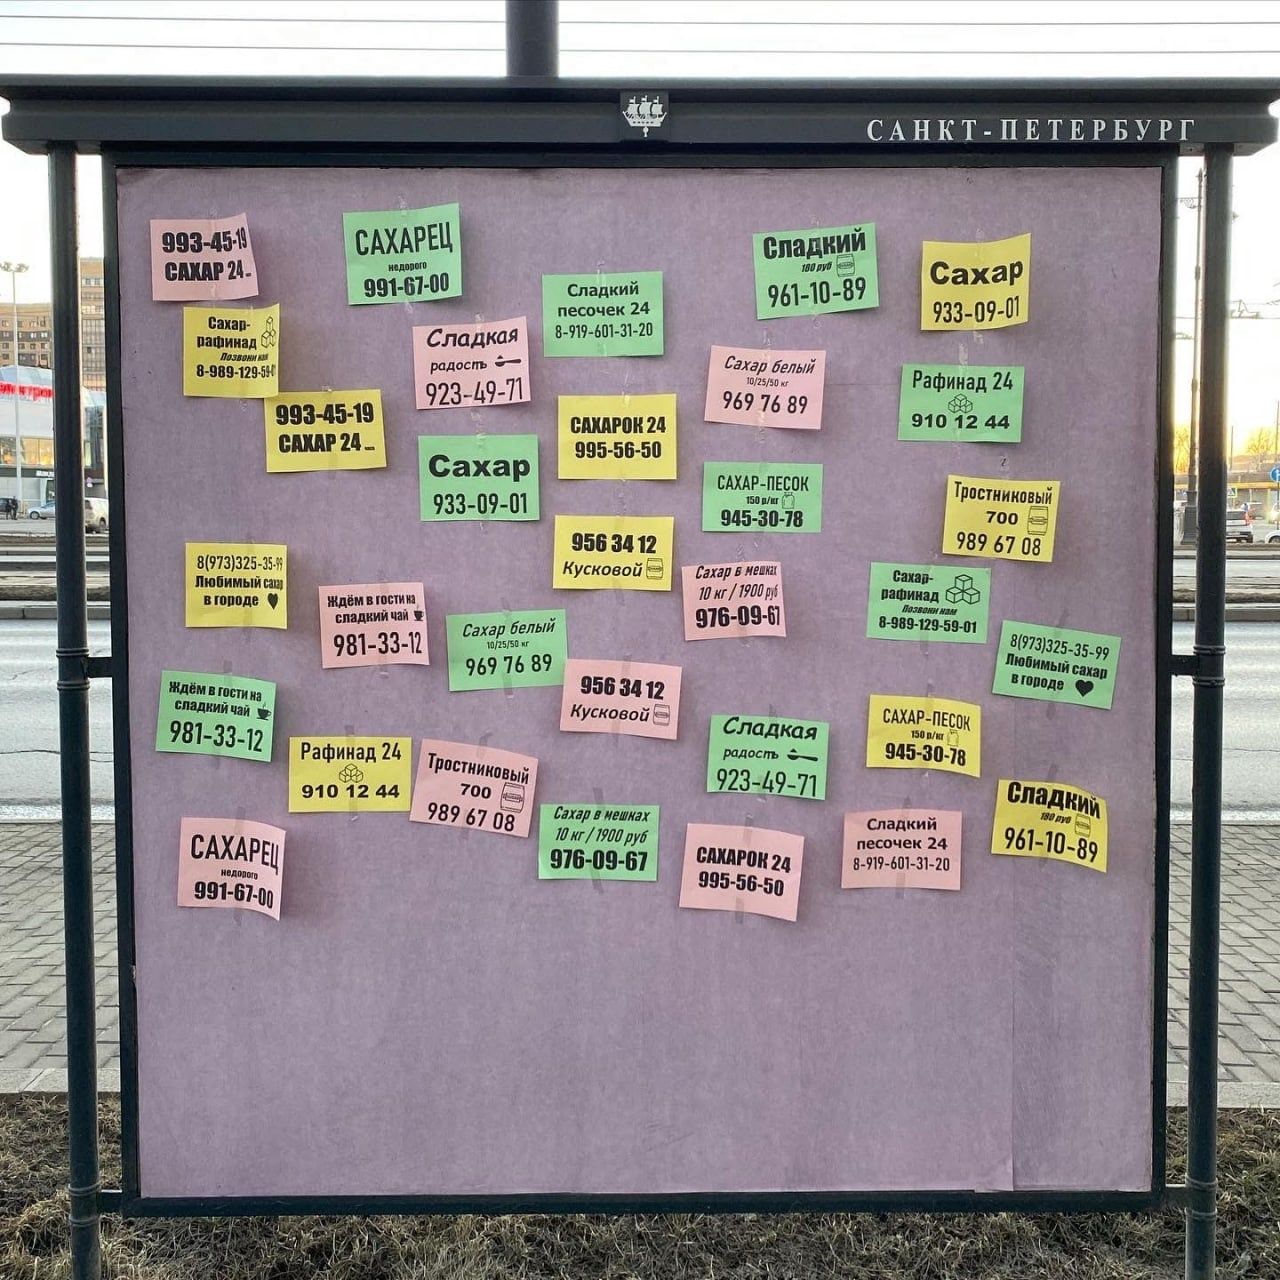 САНКТ-ПЕТЕРБУРГ
993-45-19
САХАР 24
САХАРЕЦ
недорого
991-67-00
Сладкий
песочек 24
8-919-601-31-20
Сладкий
180 руб
961-10-89
Сахар
933-09-01
Сахар-
рафинад
Позвони нам
8-989-129-59-01
Сладкая
радость
923-49-71
Сахар белый
10/25/50 кг
969 76 89
Рафинад 24
910 12 44
993-45-19
САХАР 24
САХАРОК 24
995-56-50
Сахар
933-09-01
САХАР-ПЕСОК
150 р/кг
945-30-78
Тростниковый
700
989 67 08
956 34 12
Кусковой
8(973)325-35-99
Любимый сахар
в городе
Ждём в гости на
сладкий чай
981-33-12
Сахар белый
10/25/50 кг
969 76 89
Сахар в мешках
10 кг / 1900 руб
976-09-67
Сахар-
рафинад
Позвони нам
8-989-129-59-01
8(973)325-35-99
Любимый сахар
в городе
Ждём в гости на
сладкий чай
981-33-12
956 34 12
Кусковой
Сладкая
радость
923-49-71
САХАР-ПЕСОК
150 р/кг
945-30-78
Рафинад 24
910 12 44
Тростниковый
700
989 67 08
Сахар в мешках
10 кг / 1900 руб
976-09-67
Сладкий
180 руб
961-10-89
САХАРЕЦ
недорого
991-67-00
САХАРОК 24
995-56-50
Сладкий
песочек 24
8-919-601-31-20